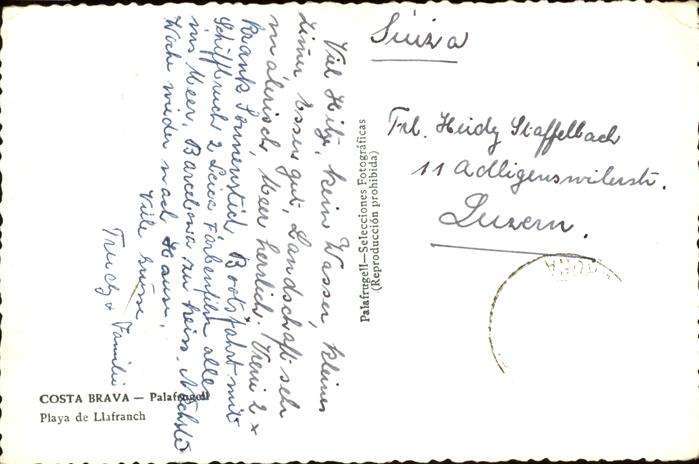 Suiza
Frl. Heidy Staffelbach
11 Adligenswilerstr.
Luzern.
Viel Hitz, kein Wasser, kleines
Zimer Essen gut, Landschaft sehr
malerisch, Meer herrlich. Vreni 2 x
krank Sonnenstich, Bootsfahrt mit
Schiffbruch 2 Leica Farbenfilm alles
ins Meer, Barcelona zu heiss. Nächste
Woche wieder nach Hause,
Viele Grüsse
Trudy & Familie
Palafrugell—Selecciones Fotográficas
(Reproducción prohibida)
COSTA BRAVA — Palafrugell
Playa de Llafranch